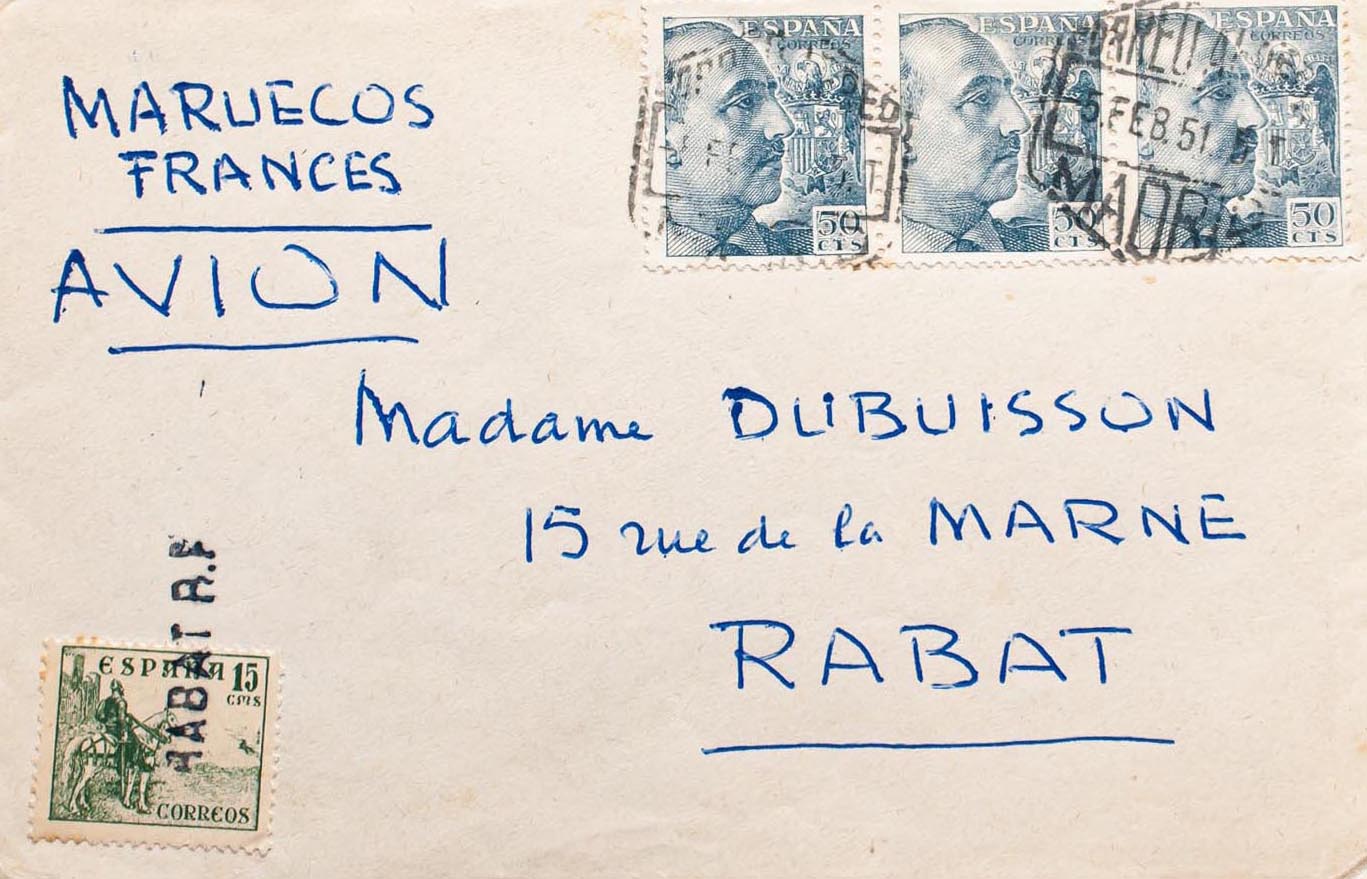 MARUECOS
FRANCES
AVION
ESPAÑA
CORREOS
50
CTS
ESPAÑA
CORREOS
50
CTS
ESPAÑA
CORREOS
50
CTS
5.FEB.51
MADRID
Madame DUBUISSON
15 rue de la MARNE
RABAT
ESPAÑA 15
CTMS
CORREOS
RABAT R.P